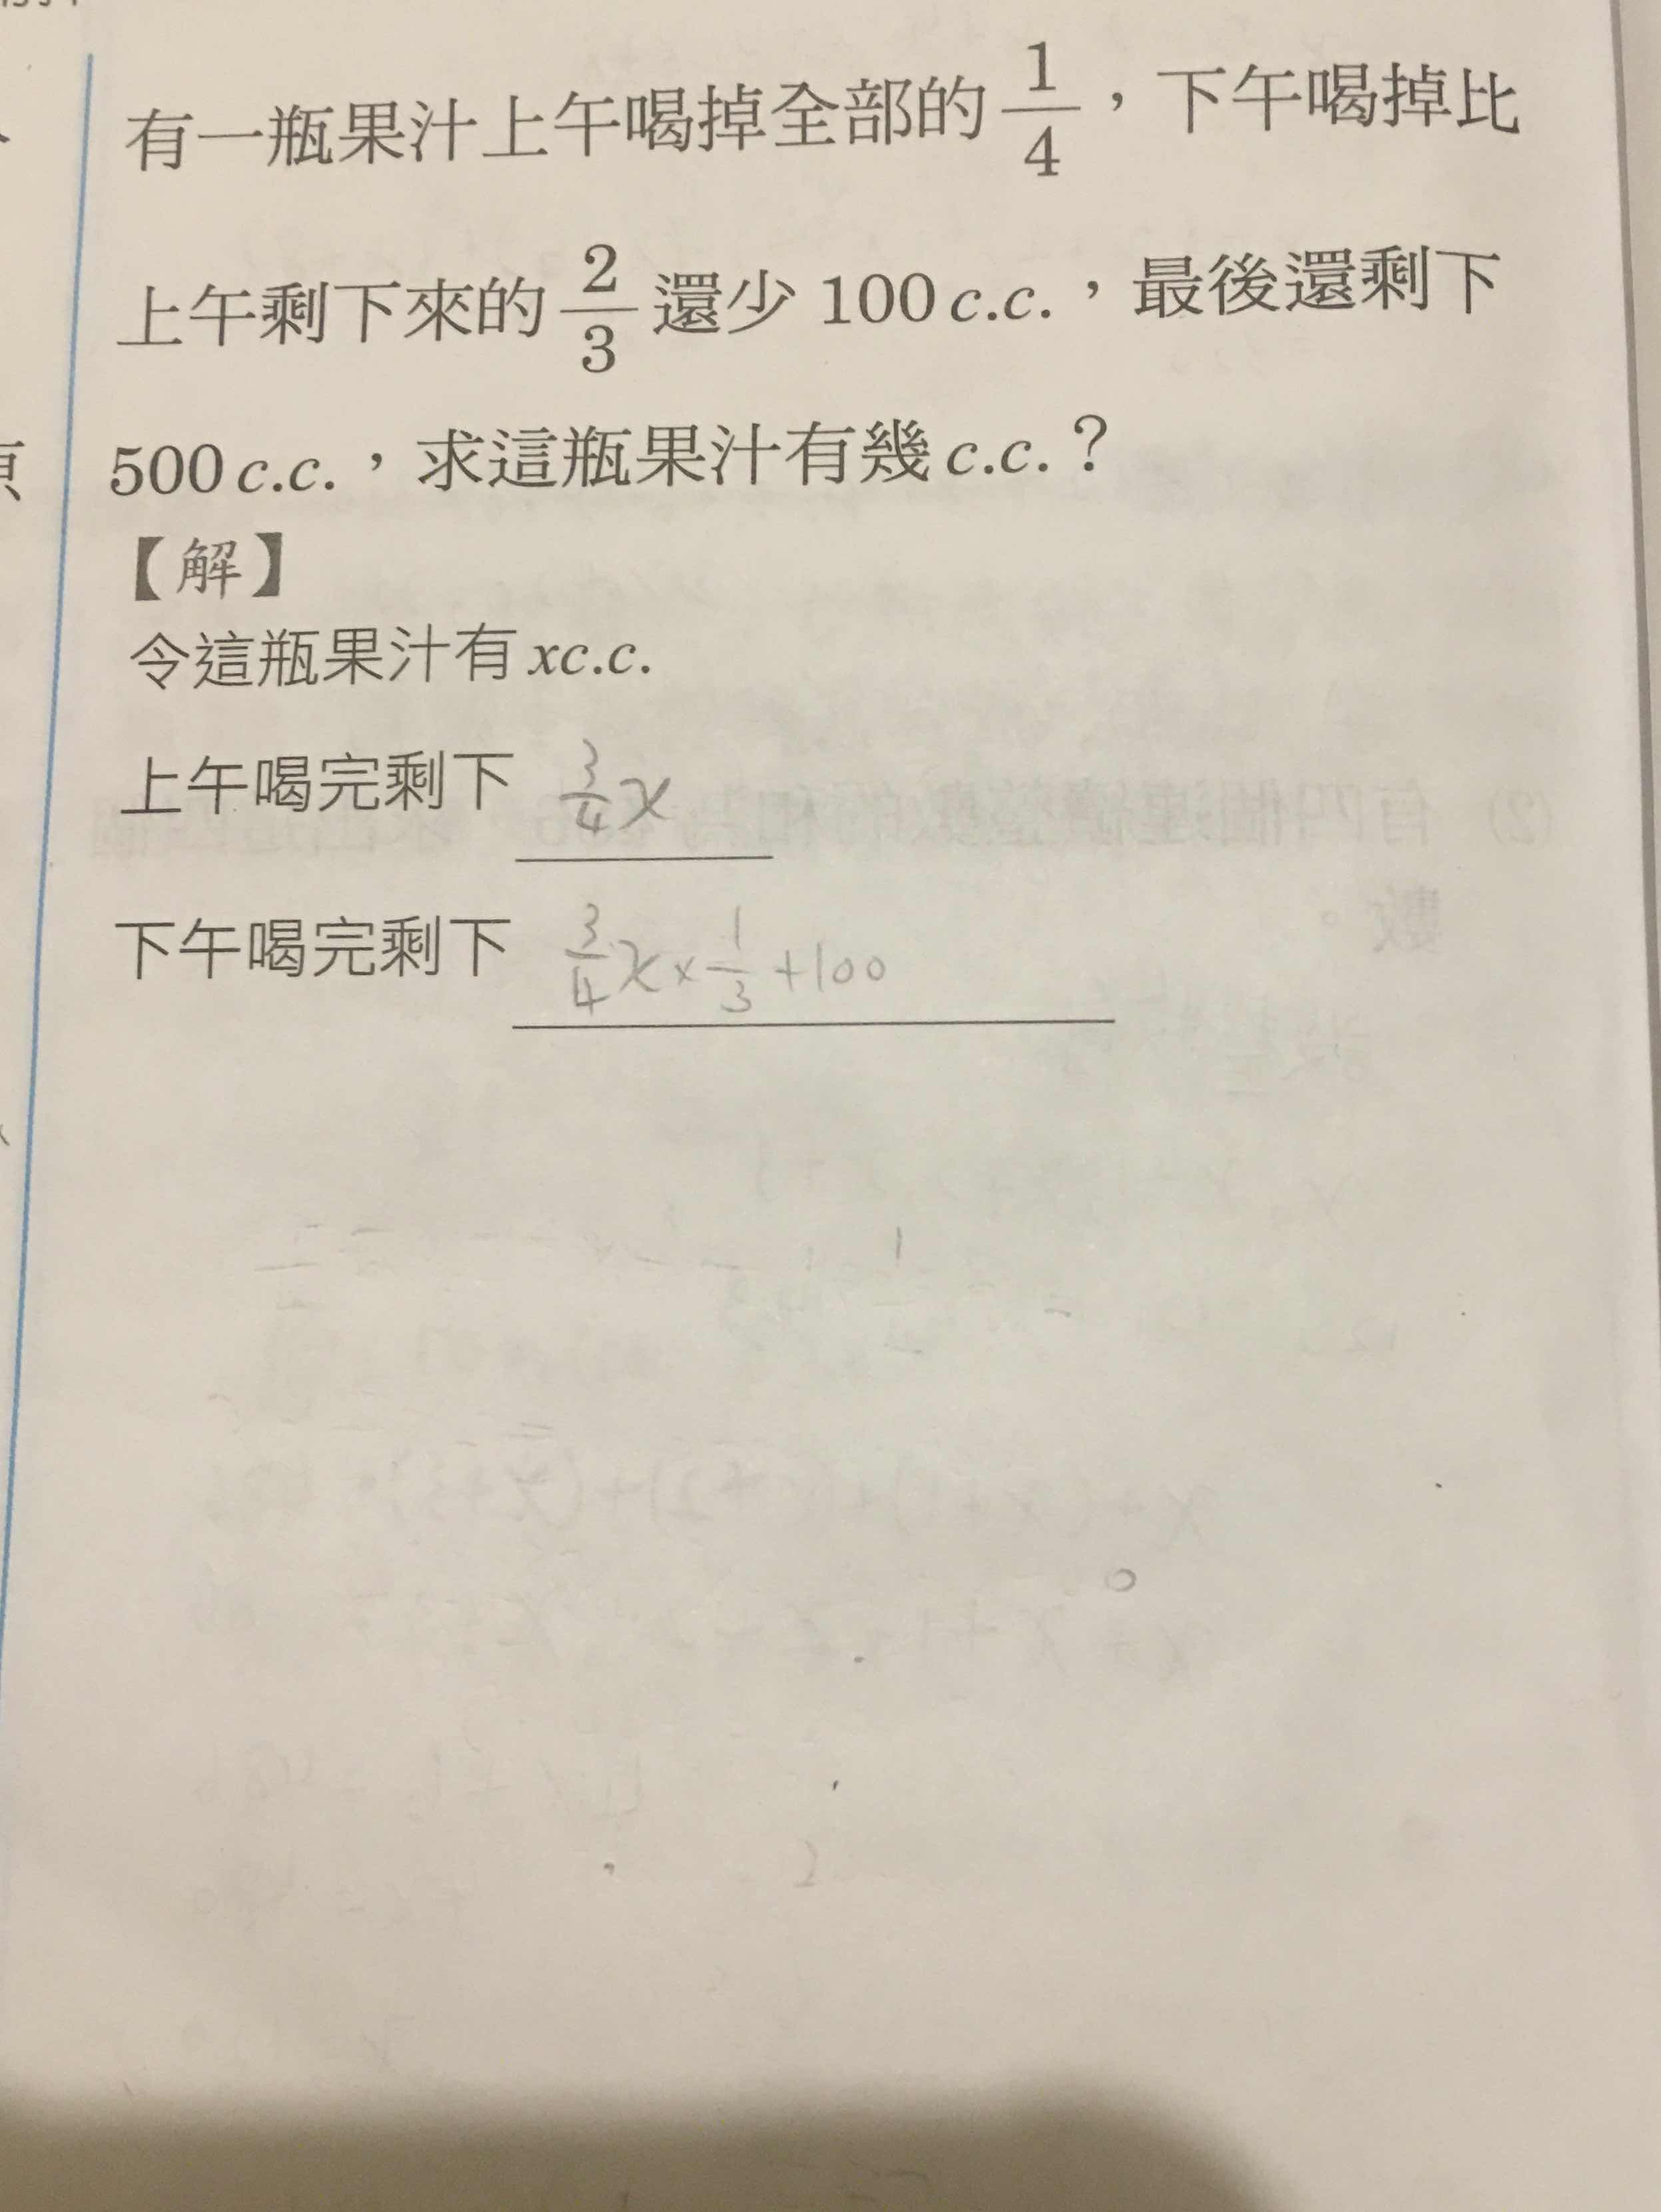 有一瓶果汁上午喝掉全部的 1/4，下午喝掉比
上午剩下來的 2/3 還少 100 c.c.，最後還剩下
500 c.c.，求這瓶果汁有幾 c.c.？
【解】
令這瓶果汁有 xc.c.
上午喝完剩下 3/4 x
下午喝完剩下 3/4 x × 1/3 + 100